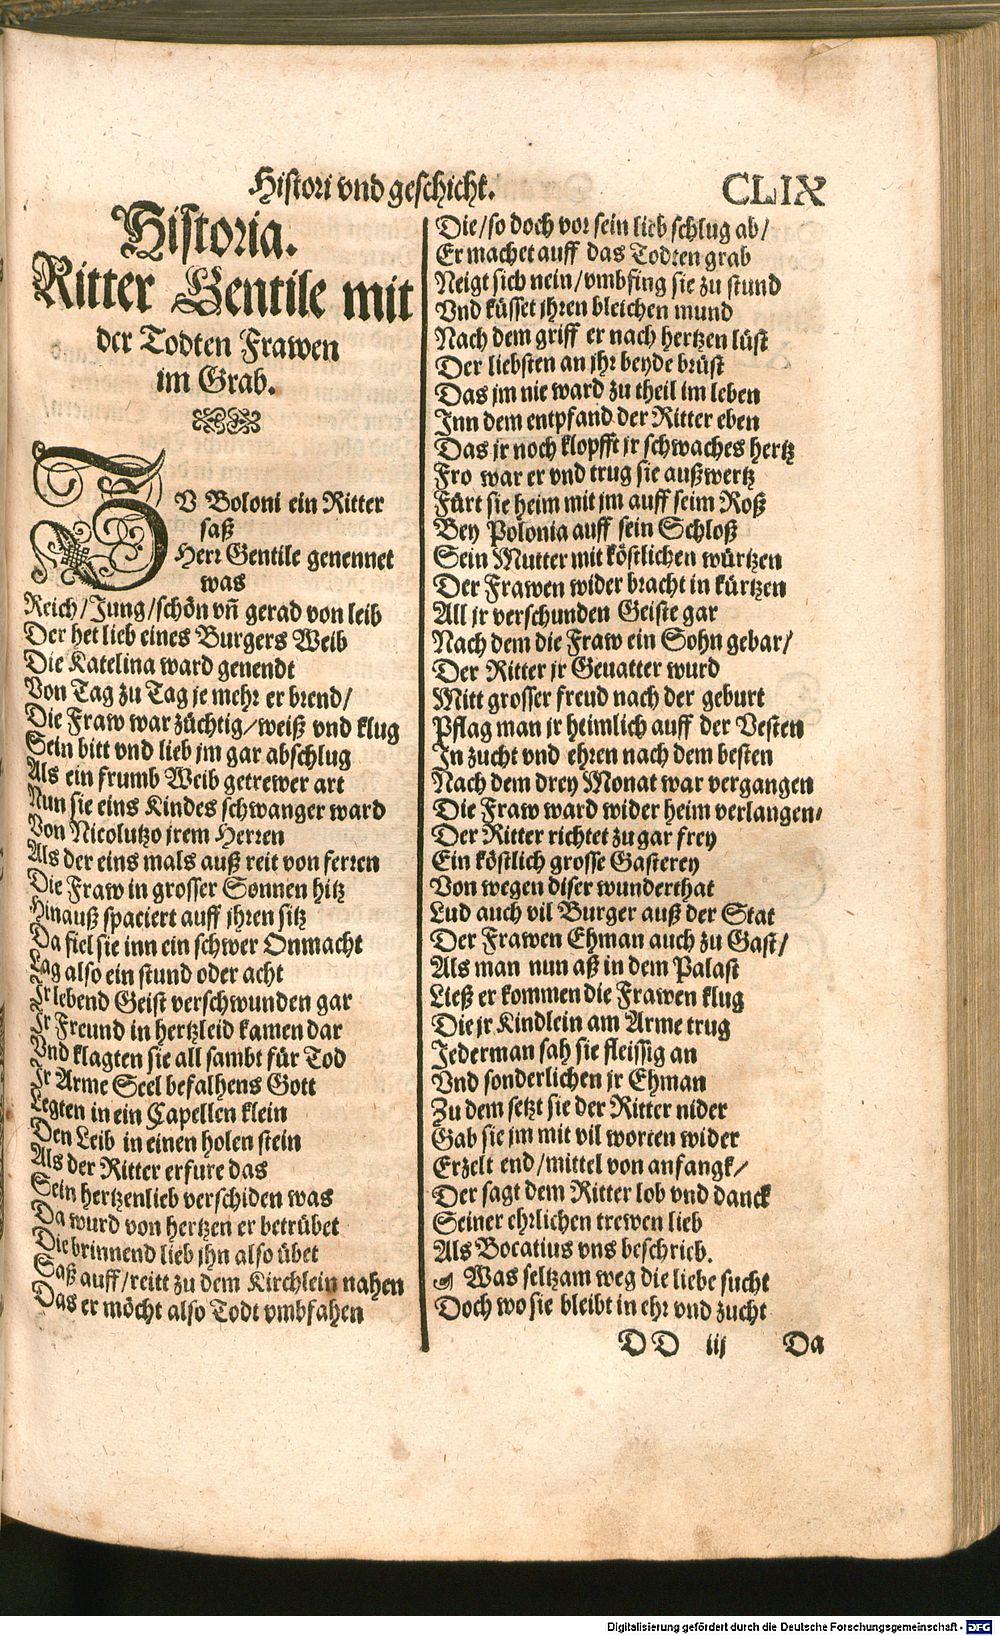 Histori vnd geschicht. CLIX
Historia.
Ritter Gentile mit
der Todten Frawen
im Grab.
ZV Boloni ein Ritter
saß
Herr Gentile genennet
was
Reich/Jung/schön vn̄ gerad von leib
Der het lieb eines Burgers Weib
Die Katelina ward genendt
Von Tag zu Tag je mehr er brend/
Die Fraw war züchtig/weiß vnd klug
Sein bitt vnd lieb jm gar abschlug
Als ein frumb Weib getrewer art
Nun sie eins Kindes schwanger ward
Von Nicolutzo jrem Herren
Als der eins mals auß reit von ferren
Die Fraw in grosser Sonnen hitz
Hinauß spaciert auff jhren sitz
Da fiel sie inn ein schwer Onmacht
Lag also ein stund oder acht
Jr lebend Geist verschwunden gar
Jr Freund in hertzleid kamen dar
Vnd klagten sie all sambt für Tod
Jr Arme Seel befalhens Gott
Legten in ein Capellen klein
Den Leib in einen holen stein
Als der Ritter erfure das
Sein hertzenlieb verschiden was
Da wurd von hertzen er betrübet
Die brinnend lieb jhn also übet
Saß auff/reitt zu dem Kirchlein nahen
Das er möcht also Todt vmbfahen
Die/so doch vor sein lieb schlug ab/
Er machet auff das Todten grab
Neigt sich nein/vmbfing sie zu stund
Vnd küsset jhren bleichen mund
Nach dem griff er nach hertzen lüst
Der liebsten an jhr beyde brüst
Das jm nie ward zu theil im leben
Inn dem entpfand der Ritter eben
Das jr noch klopfft jr schwaches hertz
Fro war er vnd trug sie außwertz
Fürt sie heim mit jm auff seim Roß
Bey Polonia auff sein Schloß
Sein Mutter mit köstlichen würtzen
Der Frawen wider bracht in kürtzen
All jr verschunden Geiste gar
Nach dem die Fraw ein Sohn gebar/
Der Ritter jr Geuatter wurd
Mitt grosser freud nach der geburt
Pflag man jr heimlich auff der Vesten
In zucht vnd ehren nach dem besten
Nach dem drey Monat war vergangen
Die Fraw ward wider heim verlangen/
Der Ritter richtet zu gar frey
Ein köstlich grosse Gasterey
Von wegen diser wunderthat
Lud auch vil Burger auß der Stat
Der Frawen Ehman auch zu Gast/
Als man nun aß in dem Palast
Ließ er kommen die Frawen klug
Die jr Kindlein am Arme trug
Jederman sah sie fleissig an
Vnd sonderlichen jr Ehman
Zu dem setzt sie der Ritter nider
Gab sie jm mit vil worten wider
Erzelt end/mittel von anfangk/
Der sagt dem Ritter lob vnd danck
Seiner ehrlichen trewen lieb
Als Bocatius vns beschrieb.
☙ Was seltzam weg die liebe sucht
Doch wo sie bleibt in ehr vnd zucht
DD iij Da
Digitalisierung gefördert durch die Deutsche Forschungsgemeinschaft - DFG